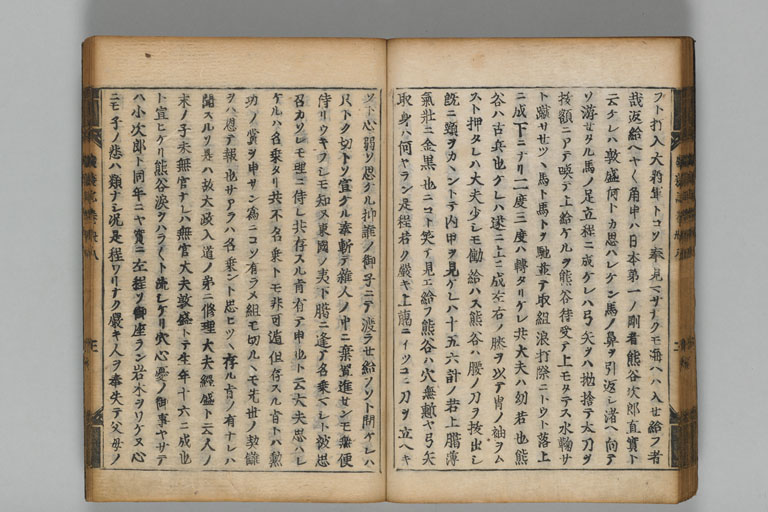 フト打入大将軍トコソ奉見マサナクモ海ヘハ入セ給フ者
哉返給ヘヤク角申ハ日本第一ノ剛者熊谷次郎直實ト
云ケレハ敦盛何トカ思ハレケン馬ノ鼻ヲ引返シ渚ヘ向テ
ソ游セタル馬ノ足立程ニ成ケレハ弓矢ヲハ抛捨テ太刀ヲ
拔額ニアテ喚テ上給ケルヲ熊谷待受テ上モタテス水鞠サ
ト蹴サセツヽ馬ト馬トヲ馳並テ取組浪打際ニトウト落上
ニ成下ニナリ二度三度ハ轉タリケレ共大夫ハ幼若也熊
谷ハ古兵也ケレハ遂ニ上ニ成左右ノ膝ヲ以テ冑ノ袖ヲム
スト押タレハ大夫少シモ働給ハス熊谷ハ腰ノ刀ヲ拔出シ
既ニ頸ヲカヽントテ内甲ヲ見ケレハ十五六計ノ若上臈薄
氣壯ニ金黒也ニコト笑テ見エ給フ熊谷ハ穴無慙ヤ弓矢
取身ハ何ヤラン是程若ク嚴キ上臈ニイツコニ刀ヲ立ヘキ
ソト心弱ソ思ケル抑誰ノ御子ニテ渡ラセ給フソト問ケレハ
只トク切トソ宣ケル奉斬テ雜人ノ中ニ棄置進センモ無便
侍リウキフシモ知ヌ東國ノ夷下臈ニ逢テ名乘マシト被思
召カソレモ理ニ侍レ共存スル旨有テ申也ト云大夫思ハレ
ケルハ名乘タリ共不名乘トモ非可遁但存スル旨トハ勲
功ノ賞ヲ申サン爲ニコソ有ラメ組モ切ルヽモ先世ノ契讎
ヲハ恩テ報也サアラハ名乘ント思ヒツヽ存ル旨ノ有ナレハ
聞スルソ是ハ故太政入道ノ弟ニ修理大夫經盛ト云人ノ
末ノ子未無官ナレハ無官大夫敦盛トテ生年十六ニ成也
ト宣ヒケリ熊谷涙ヲハラ〳〵ト流シケリ穴心憂ノ御事ヤサテ
ハ小次郎ト同年ニヤ實ニ左程ソ御座ラン岩木ヲワケヌ心
ニモ子ノ悲ハ類ナシ况是程ワリナク嚴キ人ヲ奉失テ父母ノ